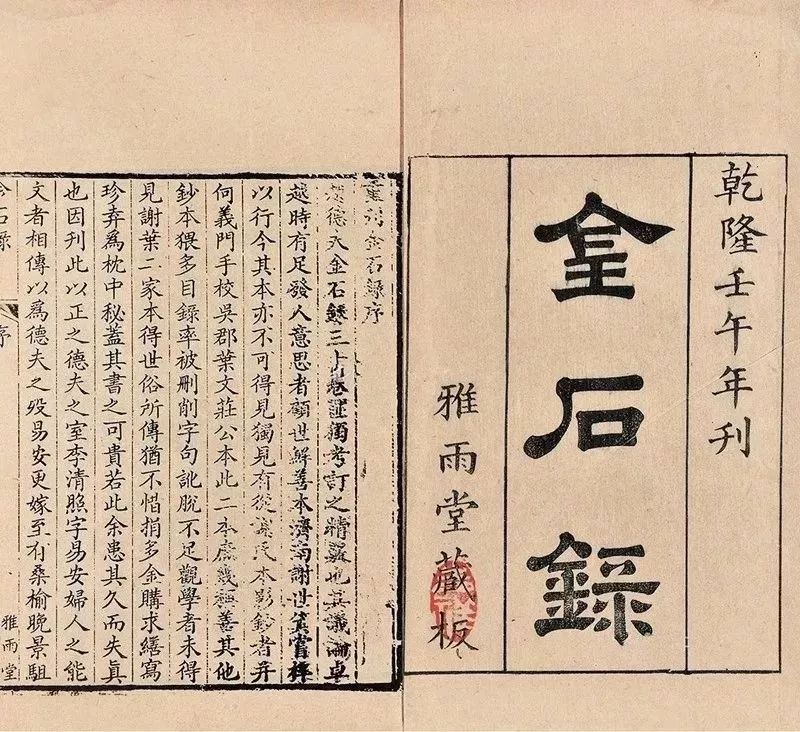 乾隆壬午年刊
金石錄
雅雨堂藏板
重刊金石錄序
趙德夫金石錄三十卷匪獨考訂之精覈也其議論卓
越時有足發人意思者顧世鮮善本濟南謝世箕嘗梓
以行今其本亦不可得見獨見有從謝氏本影鈔者并
何義門手校吳郡葉文莊公本此二本庶幾稱善其他
鈔本猥多目錄率被刪削字句訛脫不足觀學者未得
見謝葉二家本得世俗所傳猶不惜捐多金購求繕寫
珍弆爲枕中秘蓋其書之可貴若此余患其久而失眞
也因刊此以正之德夫之室李清照字易安婦人之能
文者相傳以爲德夫之歿易安更嫁至有桑榆晚景駔
金石錄
序
雅雨堂